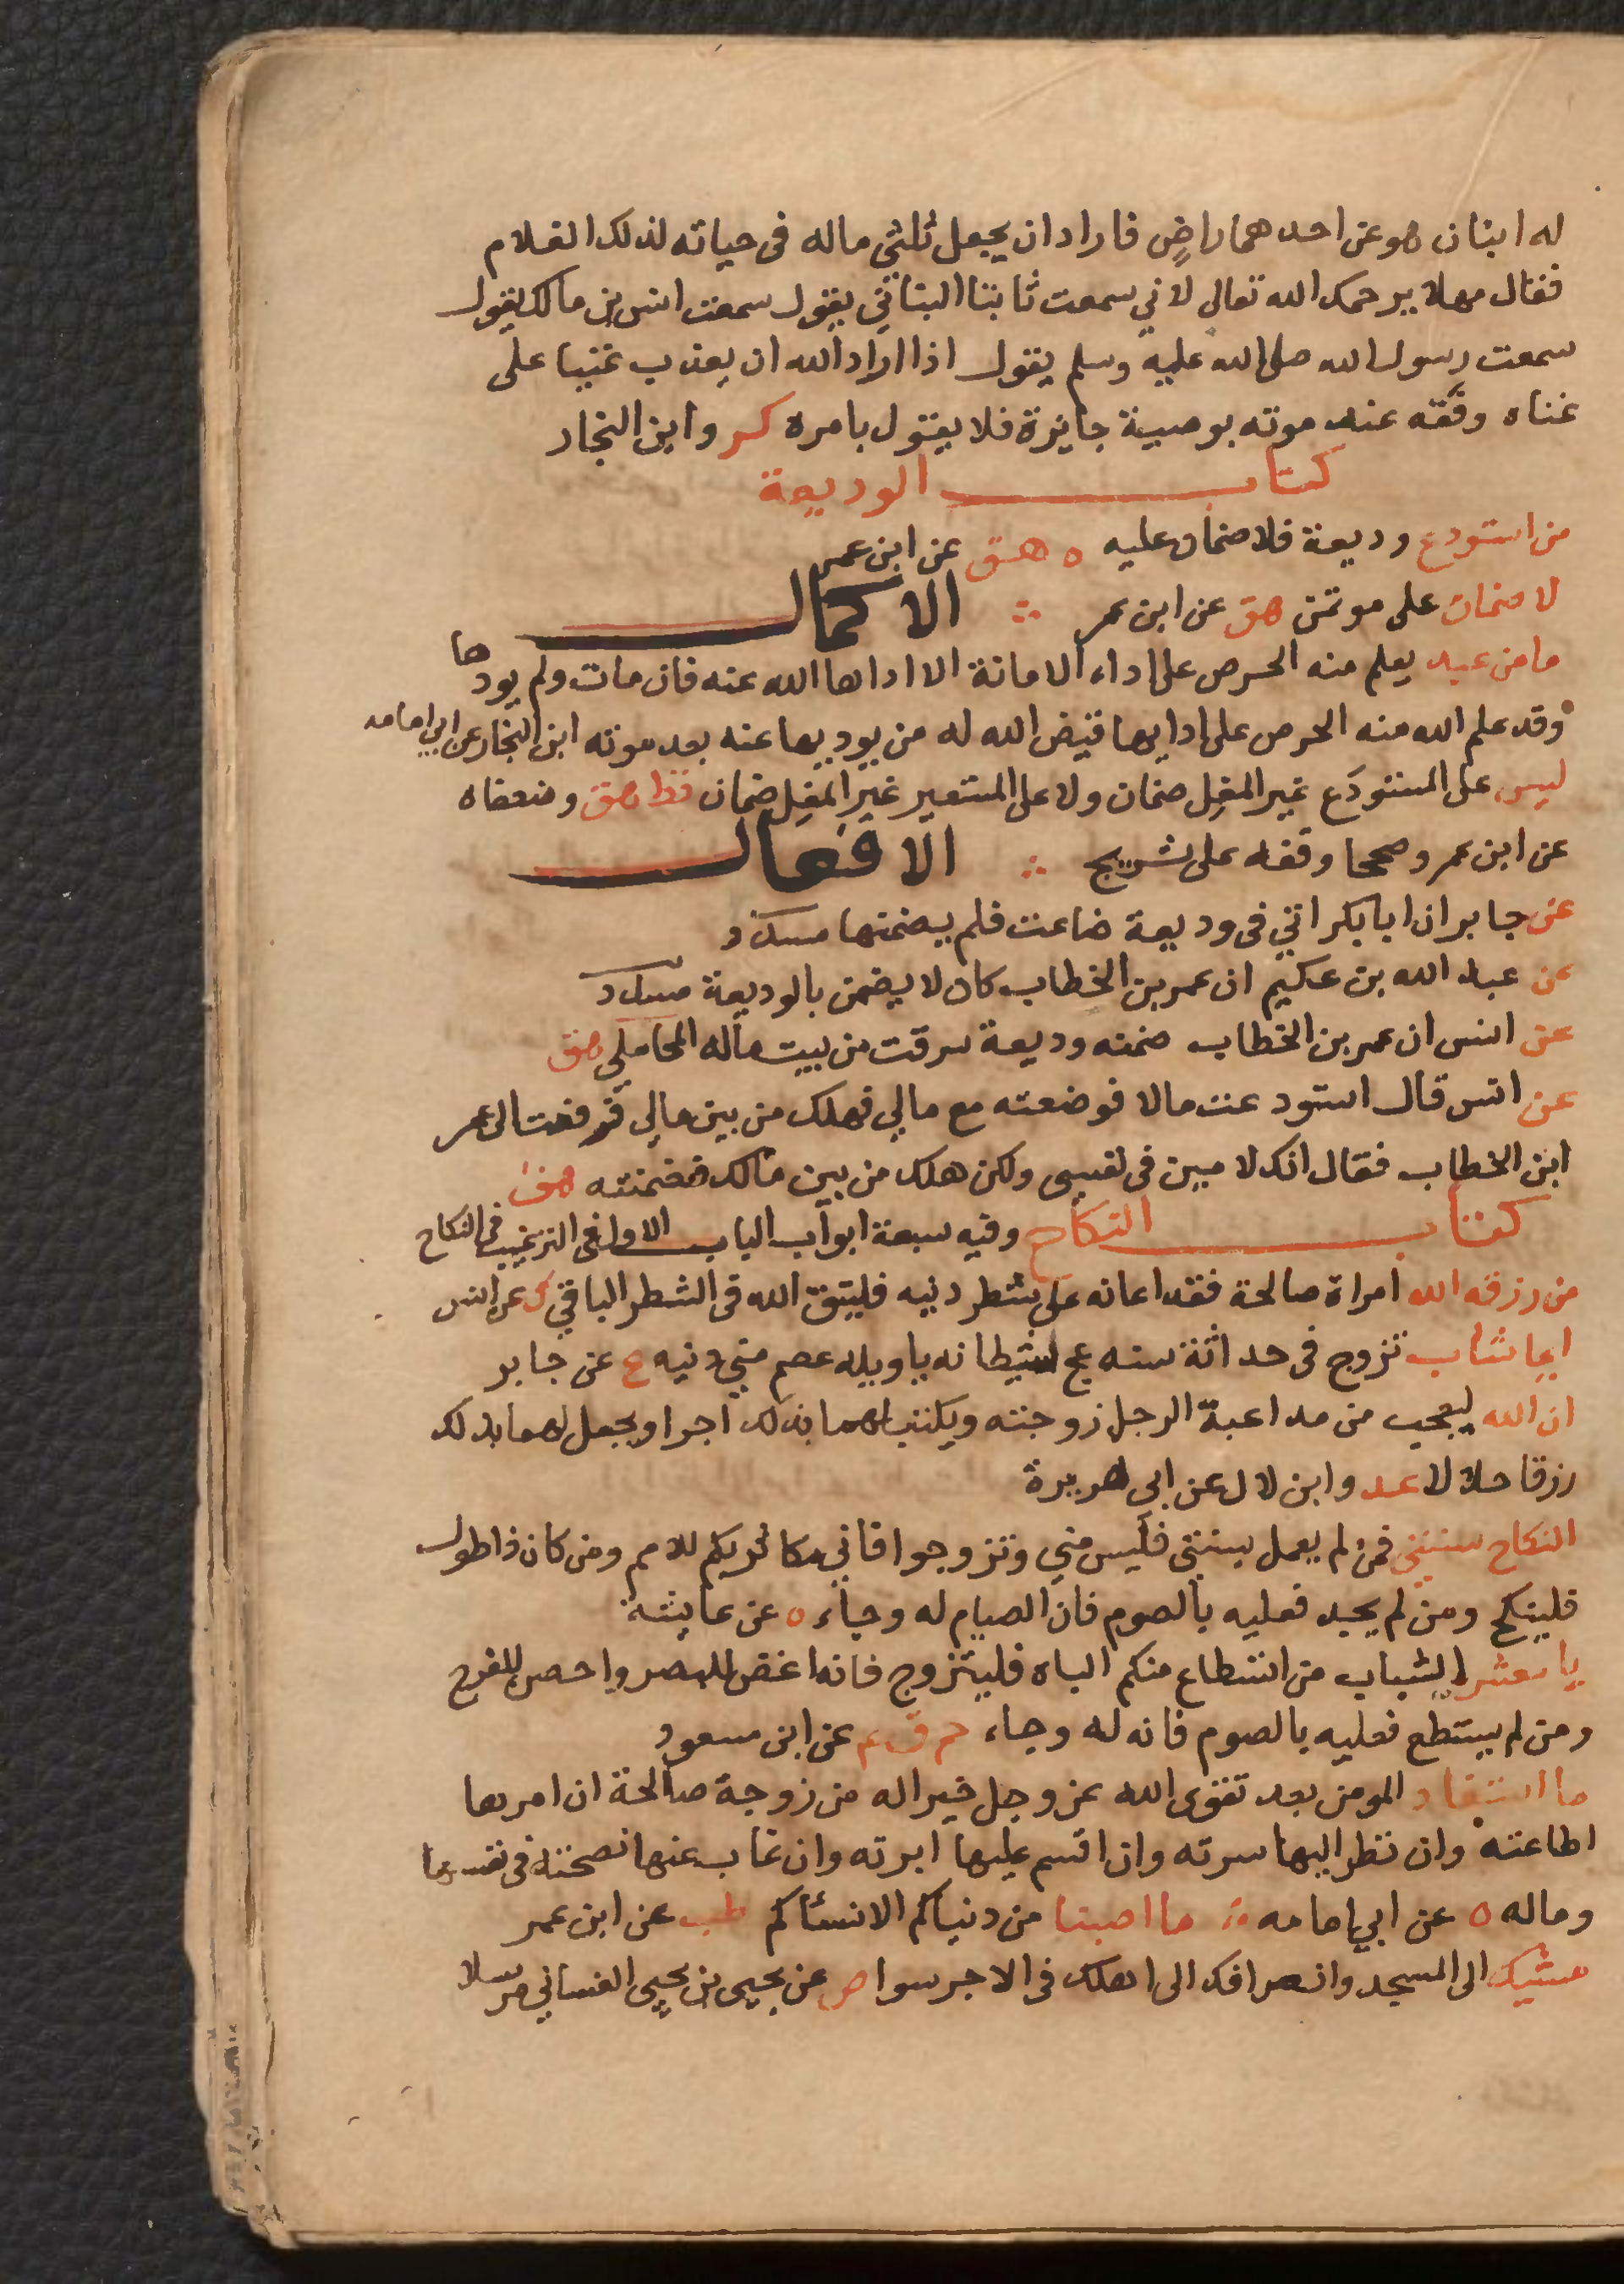 له ابنان هو عن احدهما راضٍ فاراد ان يجعل ثلثي ماله في حياته لذلك الغلام
فقال مهلا يرحمك الله تعالى لاني سمعت ثابتا البناني يقول سمعت انس بن مالك يقول
سمعت رسول الله صلى الله عليه وسلم يقول اذا اراد الله ان يعذب غنيا على
غناه وفقه عند موته بوصية جايزة فلا يقول بامره كر وابن النجار
كتاب الوديعة
من استودع وديعة فلا ضمان عليه ه هق عن ابن عمر
لا ضمان على موتمن هق عن ابن عمر ∴ الاكمال
ما من عبد يعلم منه الحرص على اداء الامانة الا اداها الله عنه فان مات ولم يودها
وقد علم الله منه الحرص على ادايها قيض الله له من يوديها عنه بعد موته ابن النجار عن ابي امامه
ليس على المستودَع غير المغِل ضمان ولا على المستعير غير المغِل ضمان قط هق وضعفاه
عن ابن عمر وصححا وقفه على شريح ∴ الافعال
عن جابر ان ابا بكر اتي في وديعة ضاعت فلم يضمنها مسدد
عن عبد الله بن عكيم ان عمر بن الخطاب كان لا يضمن بالوديعة مسدد
عن انس ان عمر بن الخطاب ضمنه وديعة سرقت من بيت ماله المحاملي هق
عن انس قال استودعت مالا فوضعته مع مالي فهلك من بين مالي فرفعت الى عمر
ابن الخطاب فقال انك لامين في نفسي ولكن هلك من بين مالك فضمنته هق
كتاب النكاح وفيه سبعة ابواب الباب الاول في الترغيب في النكاح
من رزقه الله امراة صالحة فقد اعانه على شطر دنيه فليتق الله في الشطر الباقي ك عن انس
ايما شاب تزوج في حداثة سنه عج شيطانه ياويله عصم مني دنيه ع عن جابر
ان الله ليعجب من مداعبة الرجل زوجته ويكتب لهما بذلك اجرا ويجعل لهما بذلك
رزقا حلالا عد وابن لال عن ابي هريرة
النكاح سنتي فمن لم يعمل بسنتي فليس مني وتزوجوا فاني مكاثر بكم للامم ومن كان ذا طول
فلينكح ومن لم يجد فعليه بالصوم فان الصيام له وجاء ه عن عايشة
يا معشر الشباب من استطاع منكم الباه فليتزوج فانه اغض للبصر واحصن للفرج
ومن لم يستطع فعليه بالصوم فانه له وجاء حم ق ع عن ابن مسعود
ما استفاد المومن بعد تقوى الله عز وجل خيرا له من زوجة صالحة ان امرها
اطاعته وان نظر اليها سرته وان اقسم عليها ابرته وان غاب عنها نصحته في نفسها
وماله ه عن ابي امامه ∴ ما اصبنا من دنياكم الا نسائكم طب عن ابن عمر
مشيك الى المسجد وانصرافك الى اهلك في الاجر سوا ص عن يحيى بن يحيى الغساني مرسلا